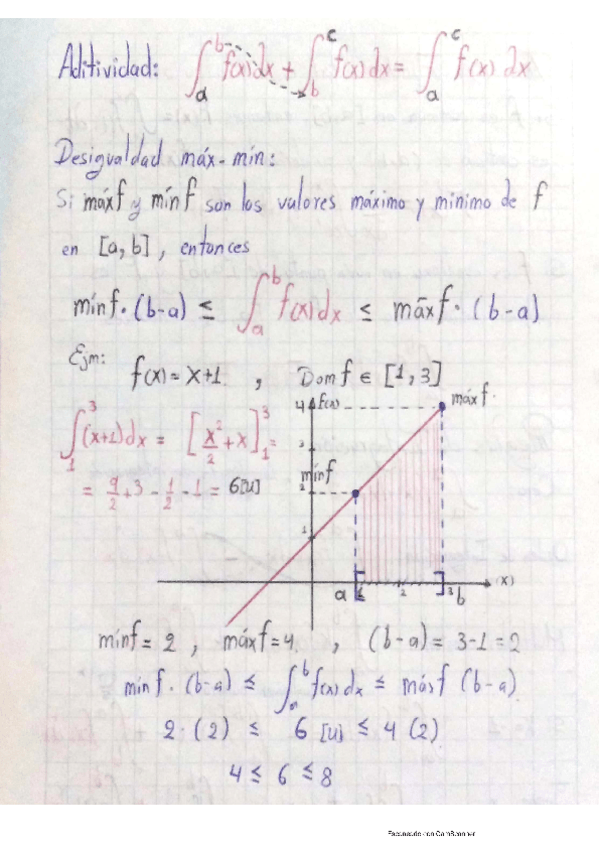 Aditividad: ∫_a^b f(x)dx + ∫_b^c f(x)dx = ∫_a^c f(x) dx
Desigualdad máx-mín:
Si máxf y mínf son los valores máximo y mínimo de f
en [a,b], entonces
mínf·(b-a) ≤ ∫_a^b f(x)dx ≤ máxf·(b-a)
Ejm: f(x)=x+1 , Dom f ∈ [1,3]
∫_1^3 (x+1)dx = [x²/2 + x]_1^3 =
= 9/2 + 3 - 1/2 - 1 = 6[u]
4 f(x) máxf
3
mínf
2
1
a 1 2 3 b (x)
mínf = 2 , máxf = 4 , (b-a) = 3-1 = 2
mínf·(b-a) ≤ ∫_a^b f(x)dx ≤ máxf (b-a)
2·(2) ≤ 6 [u] ≤ 4 (2)
4 ≤ 6 ≤ 8
Escaneado con CamScanner